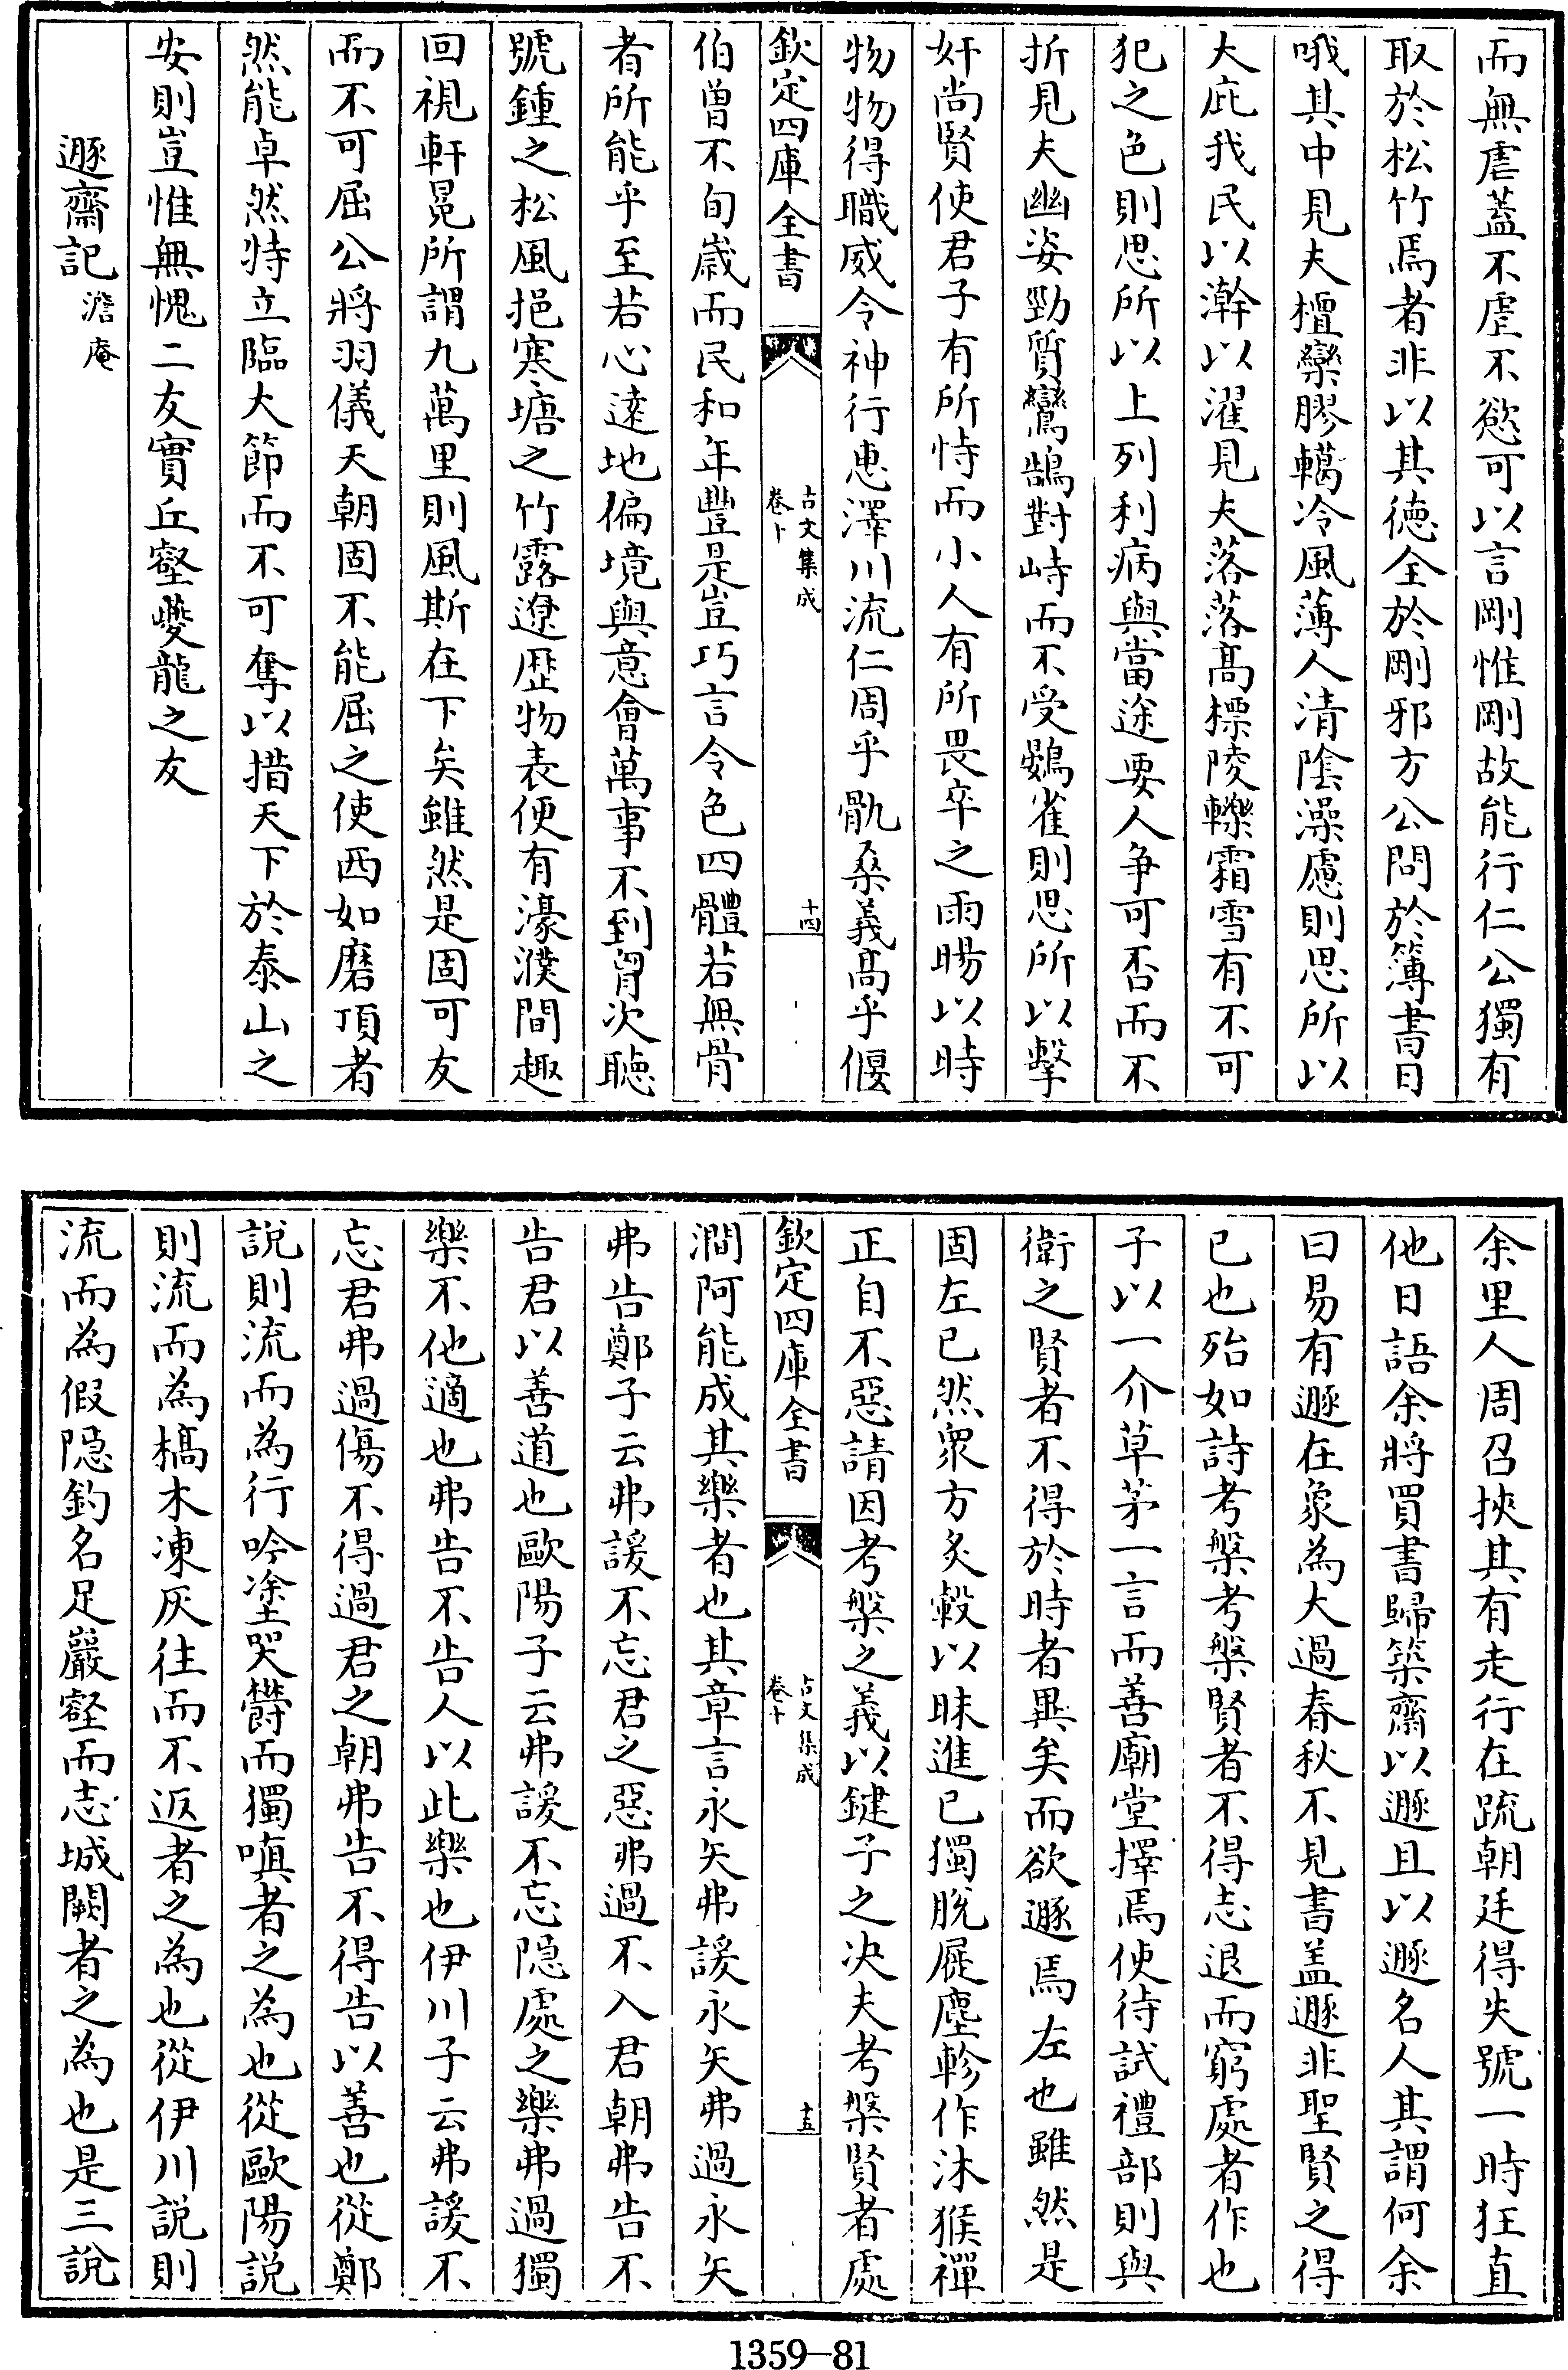 而無虐蓋不虐不慾可以言剛惟剛故能行仁公獨有
取於松竹焉者非以其德全於剛邪方公問於簿書日
哦其中見夫檀欒膠轕冷風薄人清陰澡慮則思所以
大庇我民以澣以濯見夫落落髙標陵轢霜雪有不可
犯之色則思所以上列利病與當途要人争可否而不
折見夫幽姿勁質鸞鵠對峙而不受鷃雀則思所以擊
奸尚賢使君子有所恃而小人有所畏卒之雨暘以時
物物得職威令神行惠澤川流仁周乎骫桑義髙乎偃
欽定四庫全書
古文集成
卷十
十四
伯曾不旬歲而民和年豐是豈巧言令色四體若無骨
者所能乎至若心逺地偏境與意會萬事不到胷次聽
號鍾之松風挹寒塘之竹露遼歴物表便有濠濮間趣
回視軒冕所謂九萬里則風斯在下矣雖然是固可友
而不可屈公將羽儀天朝固不能屈之使西如磨頂者
然能卓然特立臨大節而不可奪以措天下於泰山之
安則豈惟無愧二友實丘壑夔龍之友
遯齋記 澹庵
余里人周召挾其有走行在䟽朝廷得失號一時狂直
他日語余將買書歸築齋以遯且以遯名人其謂何余
曰易有遯在象為大過春秋不見書盖遯非聖賢之得
已也殆如詩考槃考槃賢者不得志退而窮處者作也
子以一介草茅一言而善廟堂擇焉使待試禮部則與
衛之賢者不得於時者異矣而欲遯焉左也雖然是
固左已然衆方炙轂以昧進已獨脫屣塵軫作沐猴禪
正自不惡請因考槃之義以鍵子之决夫考槃賢者處
欽定四庫全書
古文集成
卷十
十五
澗阿能成其樂者也其章言永矢弗諼永矢弗過永矢
弗告鄭子云弗諼不忘君之惡弗過不入君朝弗告不
告君以善道也歐陽子云弗諼不忘隠處之樂弗過獨
樂不他適也弗告不告人以此樂也伊川子云弗諼不
忘君弗過傷不得過君之朝弗告不得告以善也從鄭
說則流而為行吟塗哭欝而獨嗔者之為也從歐陽説
則流而為槁木凍灰往而不返者之為也從伊川説則
流而為假隠釣名足巖壑而志城闕者之為也是三說
1359-81